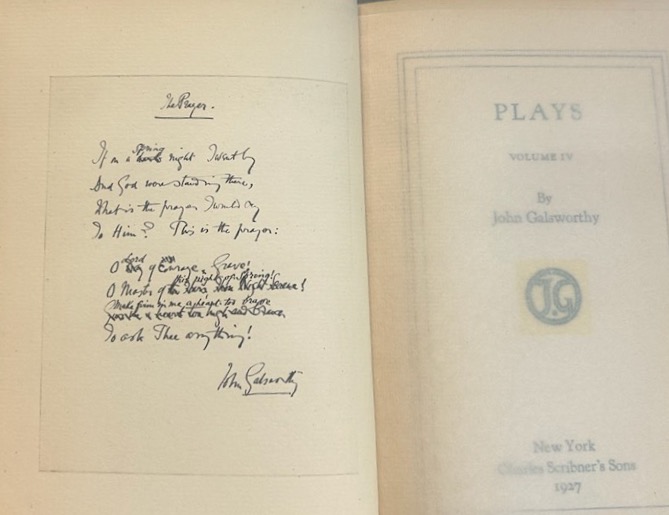 The Prayer.
If on a Spring night I went by
And God were standing there,
What is the prayer I would cry
To Him? This is the prayer:
O Lord of Courage Grave!
O Master of this night of Spring!
Make firm in me a heart too brave
To ask Thee anything!
John Galsworthy
PLAYS
VOLUME IV
By
John Galsworthy
J.G
New York
Charles Scribner's Sons
1927